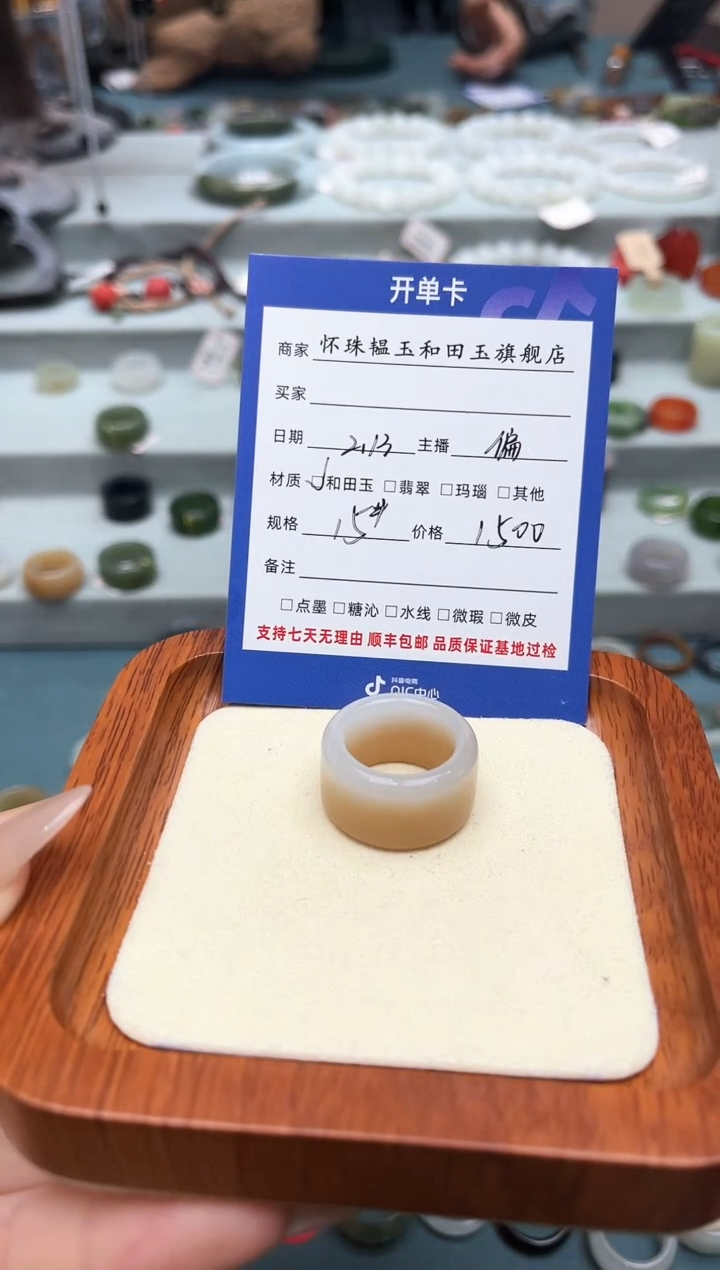 开单卡
商家 怀珠韫玉和田玉旗舰店
买家
日期 2.13 主播 偏
材质 ☑和田玉 □翡翠 □玛瑙 □其他
规格 15# 价格 1500
备注
□点墨 □糖沁 □水线 □微瑕 □微皮
支持七天无理由 顺丰包邮 品质保证基地过检
抖音电商
QIC中心